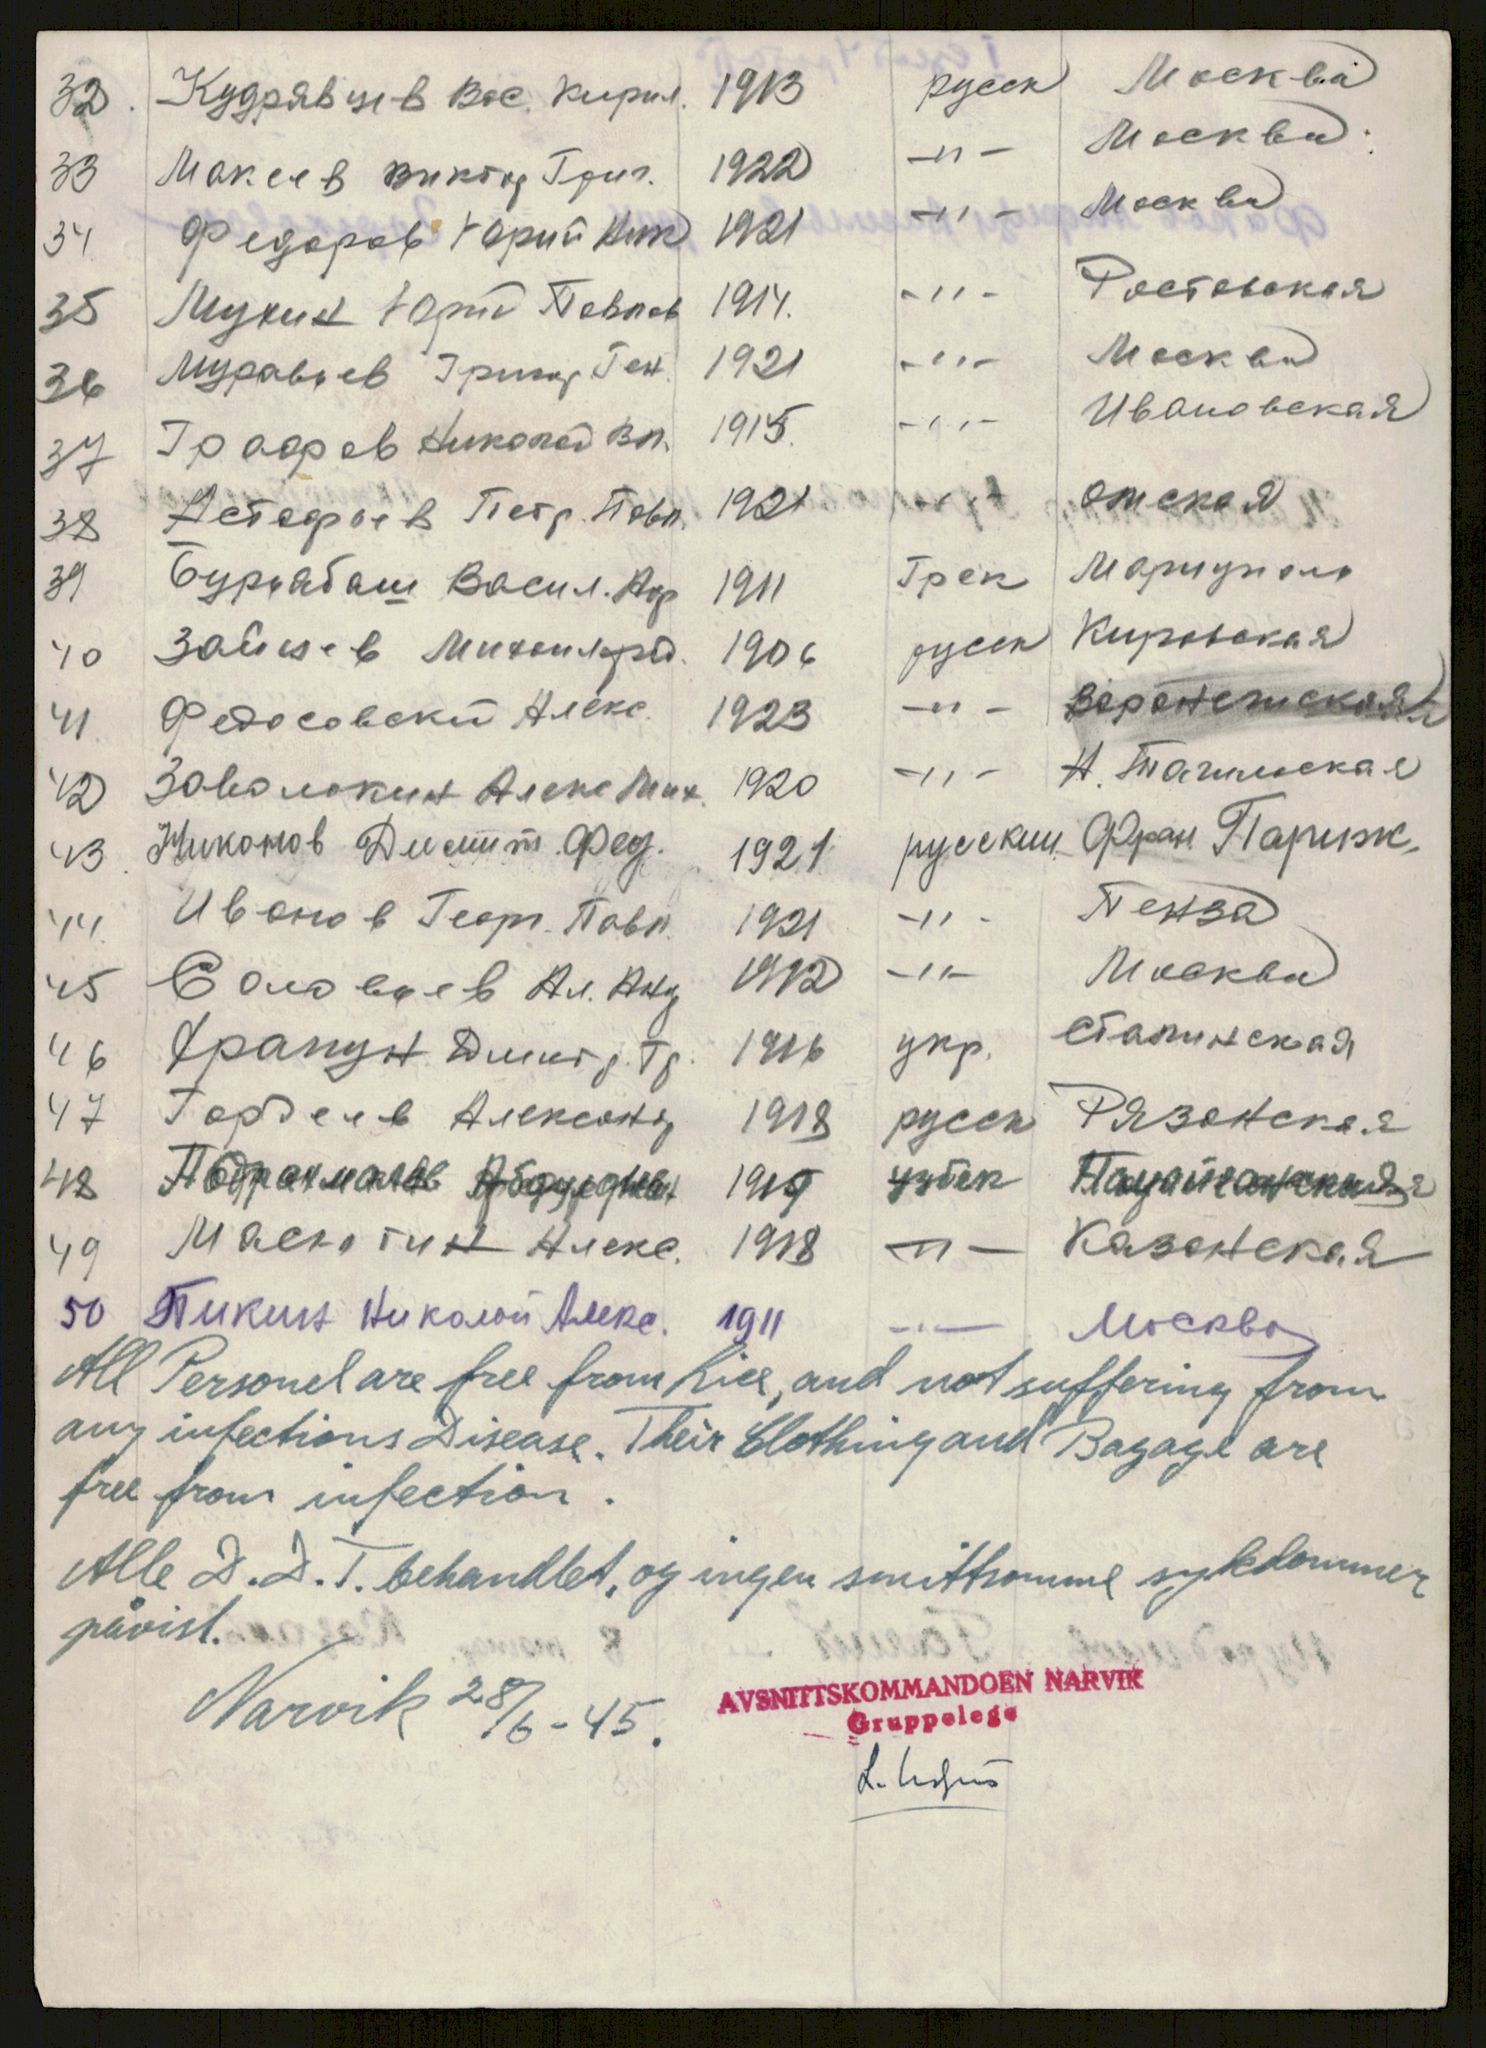 32. Кудрявцев Вас. Кирил. 1913 русск Москва
33 Макеев Виктор Григ. 1922 -"- Москва
34 Федоров Юрий Ник 1921 -"- Москва
35 Мухин Юрий Павлов 1914. -"- Ростовская
36 Муравьев Григор Ген. 1921 -"- Москва
37 Николай Вл. 1915. -"- Ивановская
38 Астафьев Петр. Павл. 1921 -"- Омская
39 Бурлабаш Васил. 1911 Грек Мариуполь
40 Зайцев Михаил 1906 русск Кировская
41 Федосовский Алекс. 1923 -"- Воронежская
42 Заволокин Алекс Мих. 1920 -"- Н. Тагильская
43. Никонов Дмит. Фед. 1921 русский Фран Париж.
44. Иванов Георг. Павл. 1921 -"- Пенза
45 Соловьев Ал. Анд 1912 -"- Москва
46 Храпун Дмитр. Гр. 1916 укр. Сталинская
47 Гордеев Александ 1918 русск Рязанская
48 узбек
49 Алекс. 1918 -"- Казанская
50 Пикин Николай Алекс. 1911 -"- Москва
All Personel are free from Lice, and not suffering from
any infections Disease. Their Clothing and Bagage are
free from infection.
Alle D.D.T. behandlet, og ingen smittsomme sykdommer
påvist.
Narvik 28/6-45.
AVSNITTSKOMMANDOEN NARVIK
Gruppelege